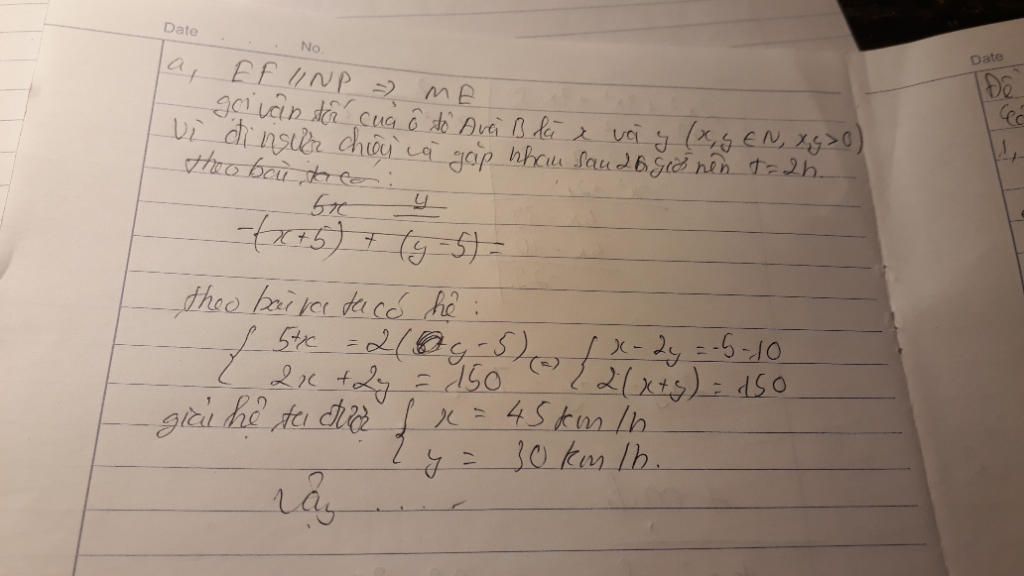 Date
No.
Date
a, EF // NP => ME
gọi vận tốc của ô tô A và B là x và y (x,y ∈ N, x,y>0)
Vì đi ngược chiều và gặp nhau sau 2 giờ nên t = 2h.
theo bài ta có :
5x y
-(x+5) + (y-5) =
theo bài ra ta có hệ :
{ 5+x = 2(y-5) (=) { x - 2y = -5-10
{ 2x + 2y = 150 { 2(x+y) = 150
giải hệ ta được { x = 45 km/h
{ y = 30 km/h.
Vậy .....
Đề
1,